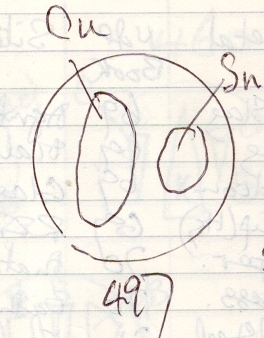 Cu
Sn
497